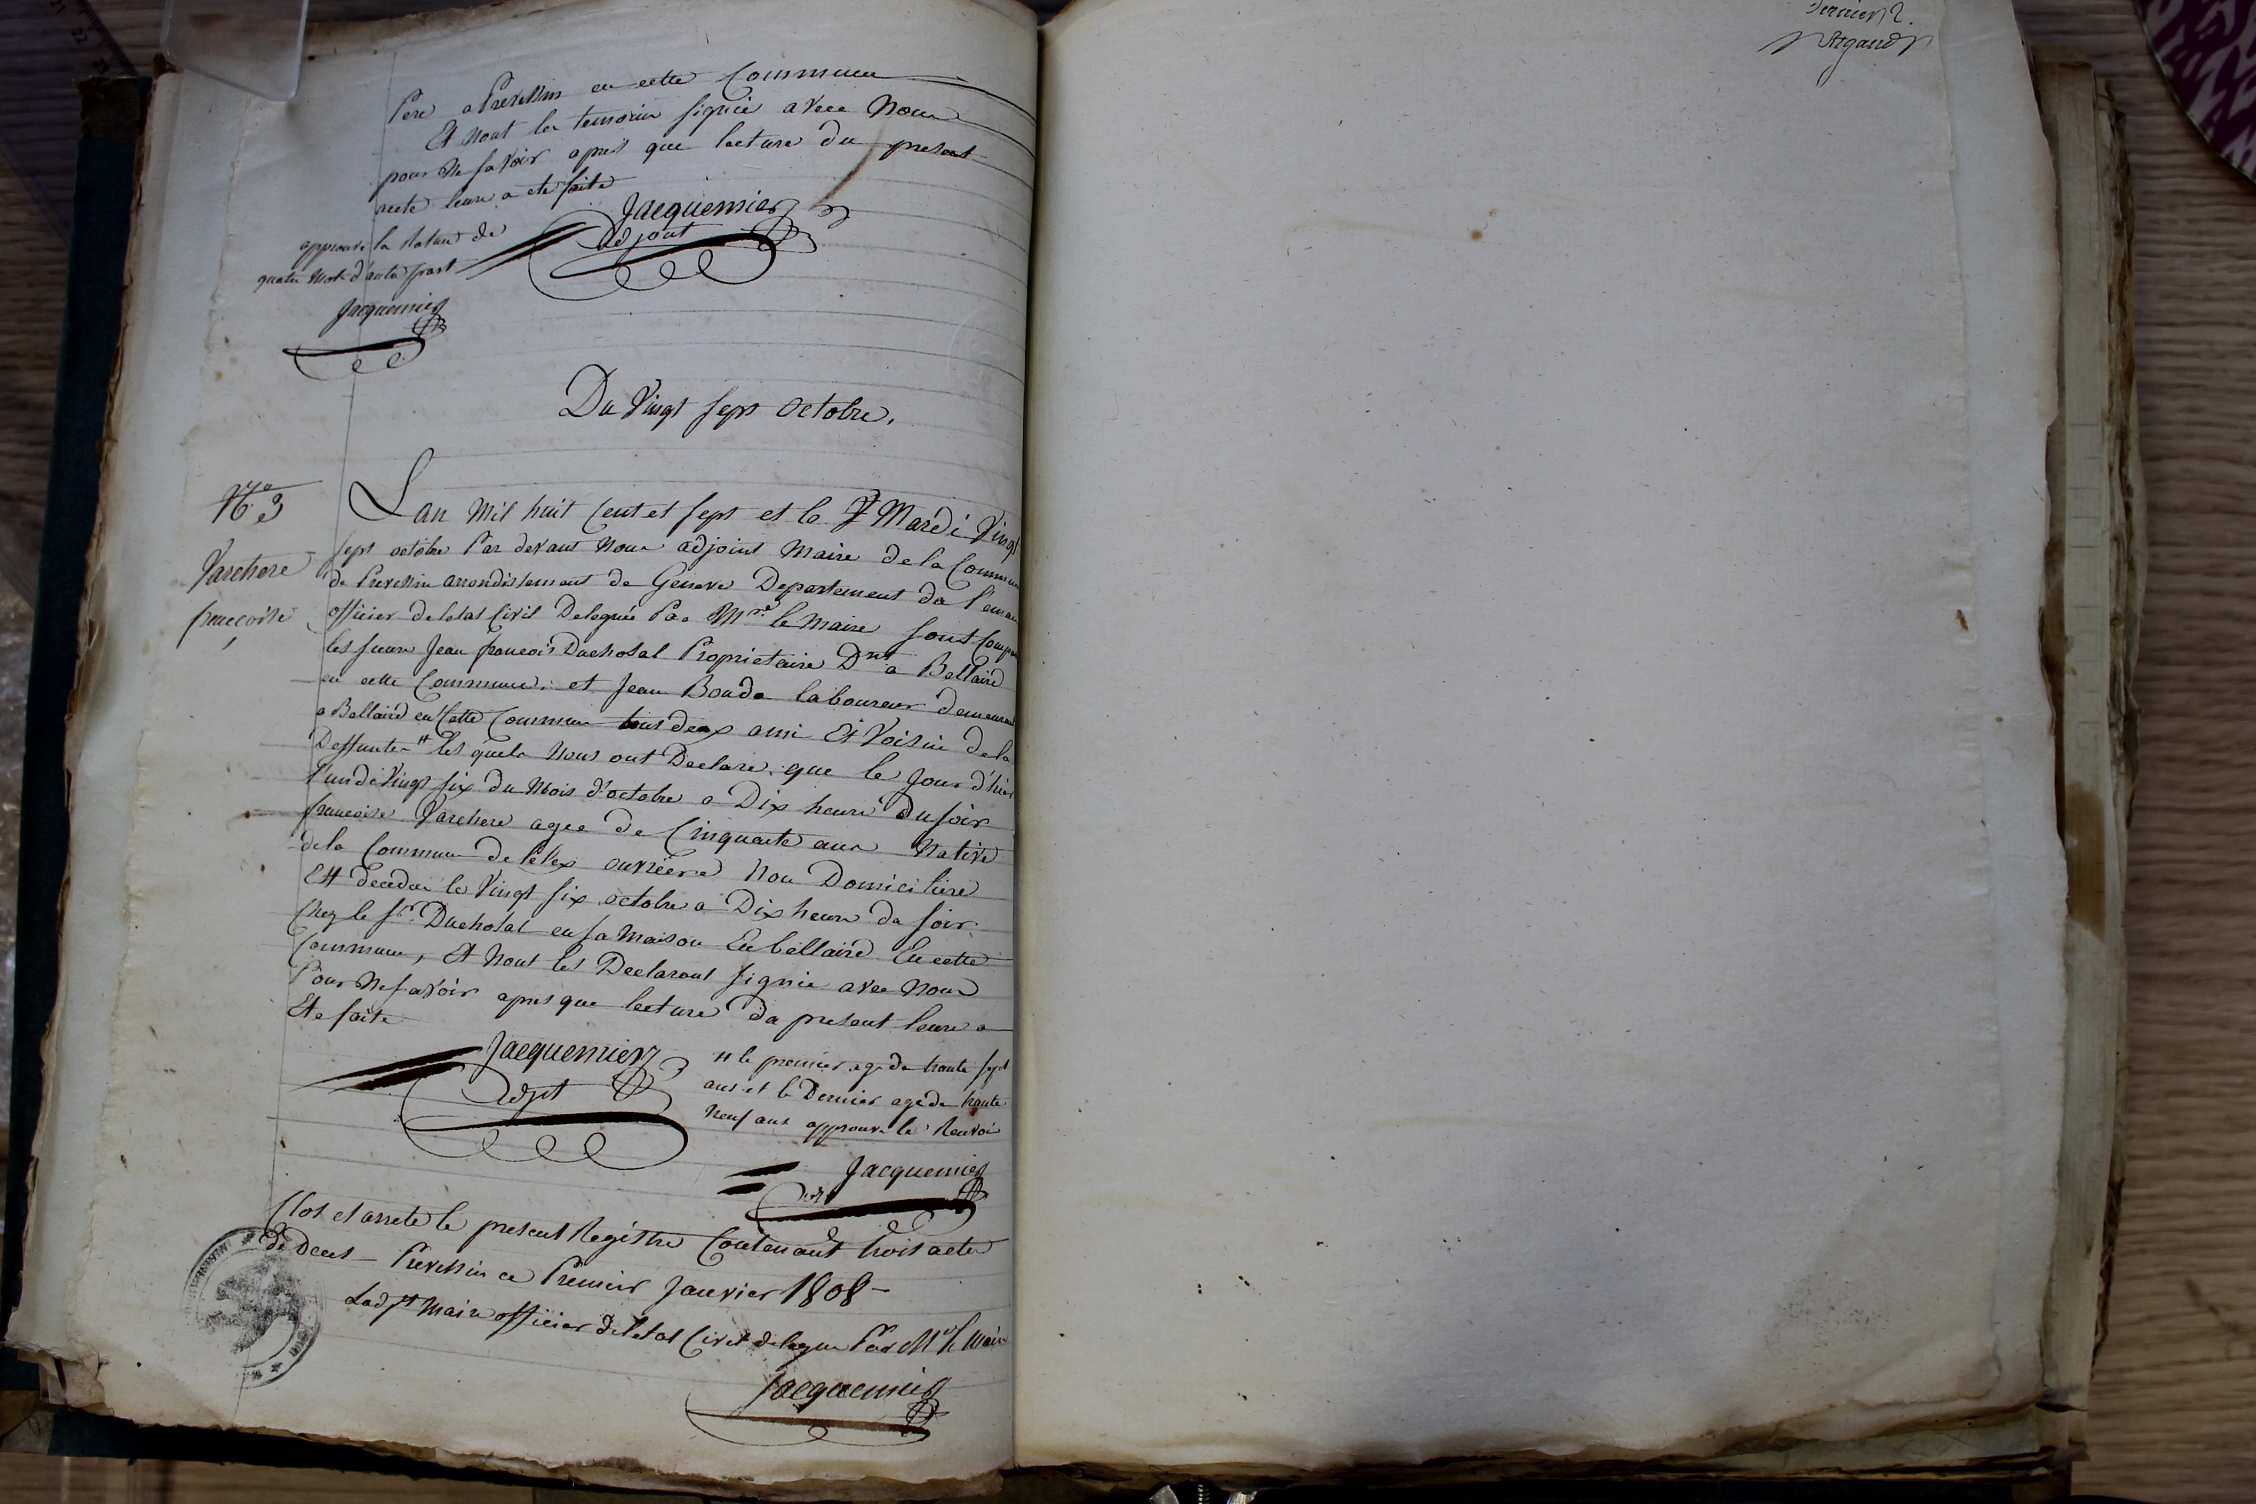 Pere a Prevessin en cette Commune
Et n'ont les temoins signée avec Nous
pour Ne savoir apres que lecture du present
acte leure a ete faite
Jacquemier
Adjoint
approuvé la Rature de
quatre mots d'autre part
Jacquemier
Du Vingt sept Octobre.
N.º 3
Varchere
françoise
Lan Mil huit Cent et sept et le Mardi Vingt
sept octobre Par devant Nous adjoint Maire de la Commune
de Prevessin arrondissement de Geneve Departement du Leman
officier de letat Civil Deleguée Par Mre le Maire sont Compar
les sieurs Jean françois Duchosal Proprietaire Dnt a Bellaire
en cette Commune. et Jean Boude laboureur demeurant
a Bellaire en Cette Commune tous deux ami Et Voisin de la
Deffunte # les quels Nous ont Declaré que le jour d'hier
lundi Vingt six du Mois d'octobre a Dix heure du soir
françoise Varchere agee de Cinquante ans Native
de la Commune de Lelex ouvriere Non Domiciliere
Est decedee le Vingt six octobre a Dix heure du soir
Chez le sr. Duchosal en sa Maison En bellaire En cette
Commune, Et N'ont les Declarant signie avec Nous
Pour Ne savoir apres que lecture du present leure a
Ete faite
Jacquemier
Adjt
# le premier age de trante sept
ans et le Dernier age de trante
Neuf ans approuve le Renvoi
Jacquemier
Clos et arrete le present Registre Contenant trois acte
de Deces - Prevessin ce Premier Janvier 1808 -
Ladjt Maire officier de letat Civil delegue Par Mr le Maire
Jacquemier
dernier 2.
Argand